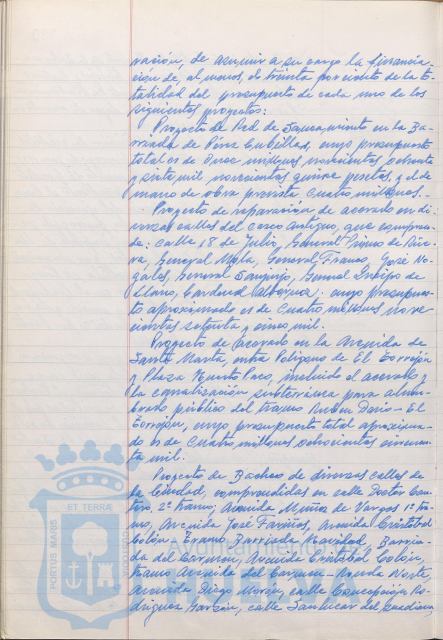 ración, de asumir a su cargo la financia-
ción de, al menos, de treinta por ciento de la to-
talidad del presupuesto de cada uno de los
siguientes proyectos:
Proyecto de Red de Saneamiento en la Ba-
rriada de Pérez Cubillas, cuyo presupuesto
total es de once millones, novecientas ochenta
y siete mil novecientas quince pesetas, y el de
mano de obra prevista cuatro millones.-
Proyecto de reparación de acerado en di-
versas calles del casco Antiguo, que compren-
de: calle 18 de Julio, General Primo de Rive-
ra, General Mola, General Franco, José No-
gales, General Sanjurjo, General Queipo de
Llano, Cardenal Albornoz: cuyo presupues-
to aproximado es de cuatro millones nove-
cientas setenta y cinco mil.
Proyecto de acerado en la Avenida de
Santa Marta, entre Polígono de El Torrejón
y Plaza Huerto Paco, incluido el acerado y
la canalización subterránea para alum-
brado público del tramo Rubén Darío - El
Torrejón, cuyo presupuesto total aproxima-
do es de cuatro millones ochocientas cincuen-
ta mil.
Proyecto de Bacheo de diversas calles de
la Ciudad, comprendidas en calle Doctor Can-
tero, 2º tramo; Avenida Muñoz de Vargas 1º tra-
mo, Avenida José Fariñas, Avenida Cristóbal
Colón, Tramo Barriada Navidad, Barria-
da del Carmen, Avenida Cristóbal Colón,
tramo Avenida del Carmen - Ronda Norte,
Avenida Diego Morón, calle Concepción Ro-
dríguez Garzón, calle Sanlúcar del Guadiana
PORTUS MARIS
ET TERRAE
CUSTODIA
Ayuntamiento